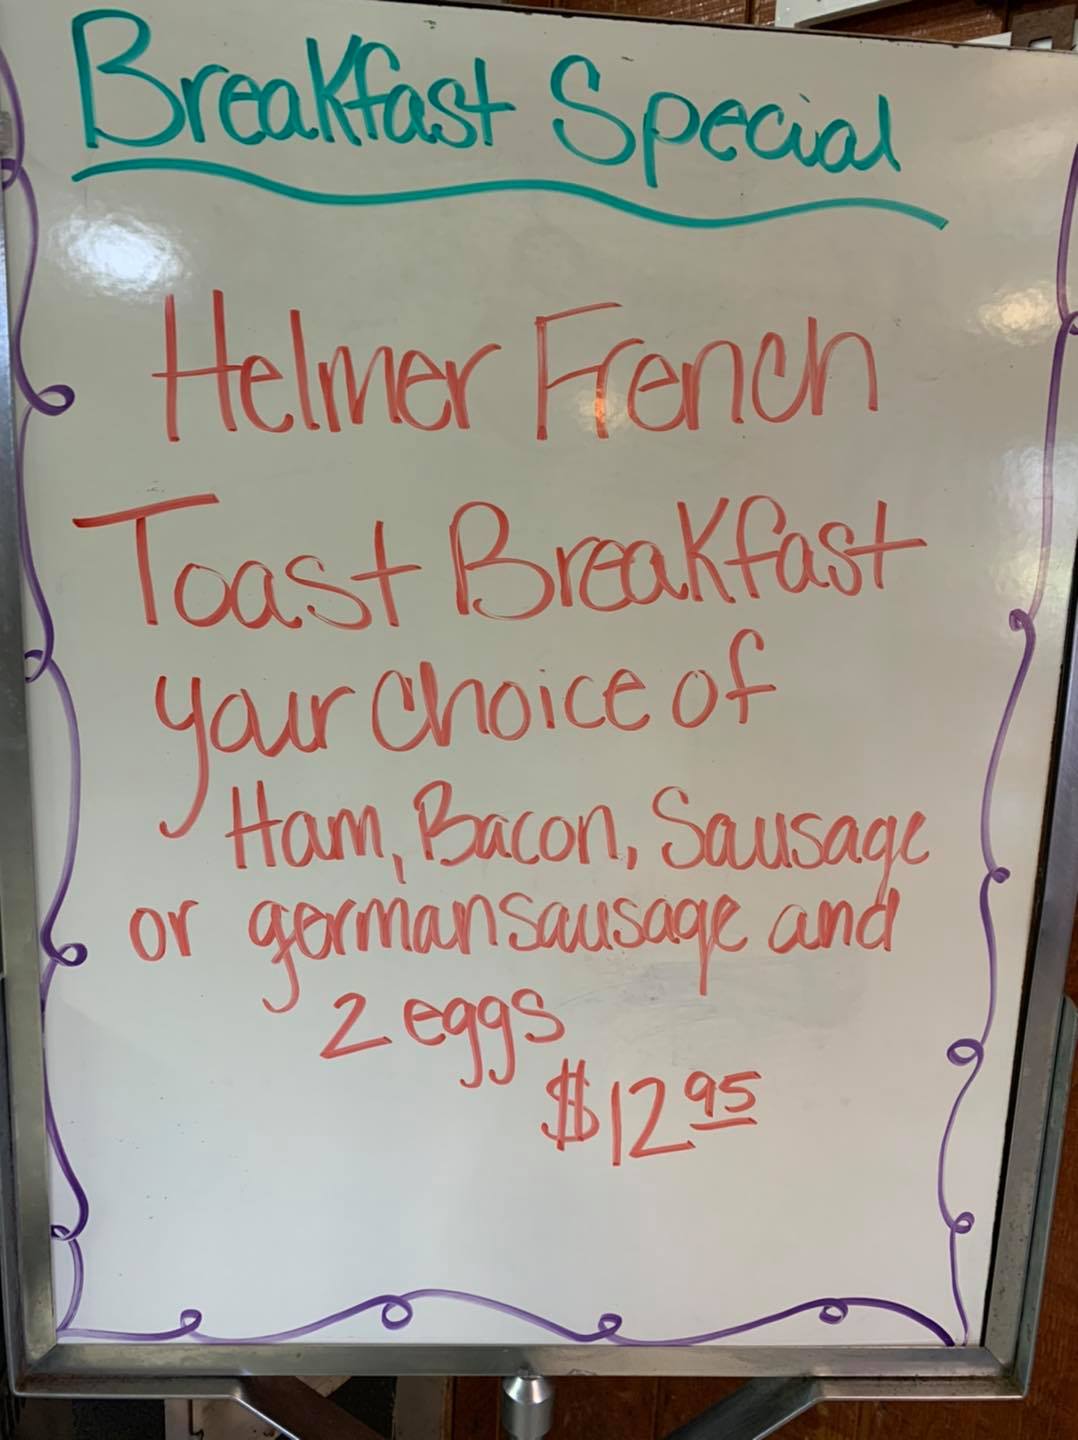 Breakfast Special
Helmer French
Toast Breakfast
your choice of
Ham, Bacon, Sausage
or german sausage and
2 eggs
$12 95